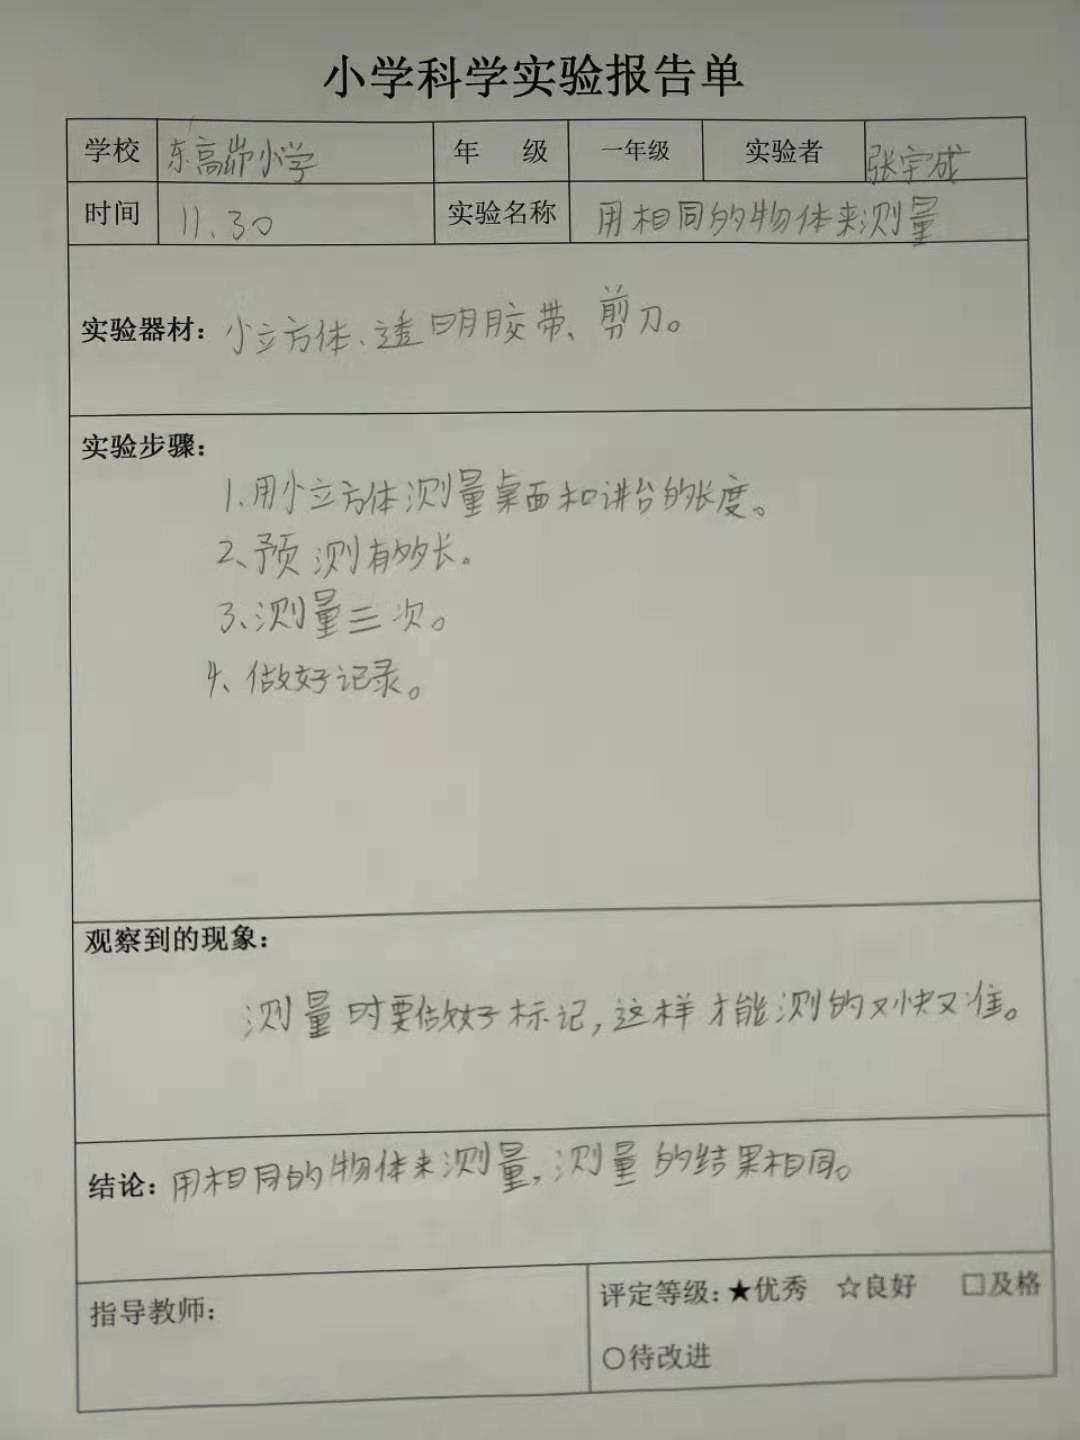 小学科学实验报告单
学校 东高峁小学 年 级 一年级 实验者 张宇成
时间 11.30 实验名称 用相同的物体来测量
实验器材：小立方体、透明胶带、剪刀。
实验步骤：
1.用小立方体测量桌面和讲台的长度。
2、预测有多长。
3、测量三次。
4、做好记录。
观察到的现象：
测量时要做好标记，这样才能测的又快又准。
结论：用相同的物体来测量，测量的结果相同。
指导教师：
评定等级：★优秀 ☆良好 □及格
○待改进